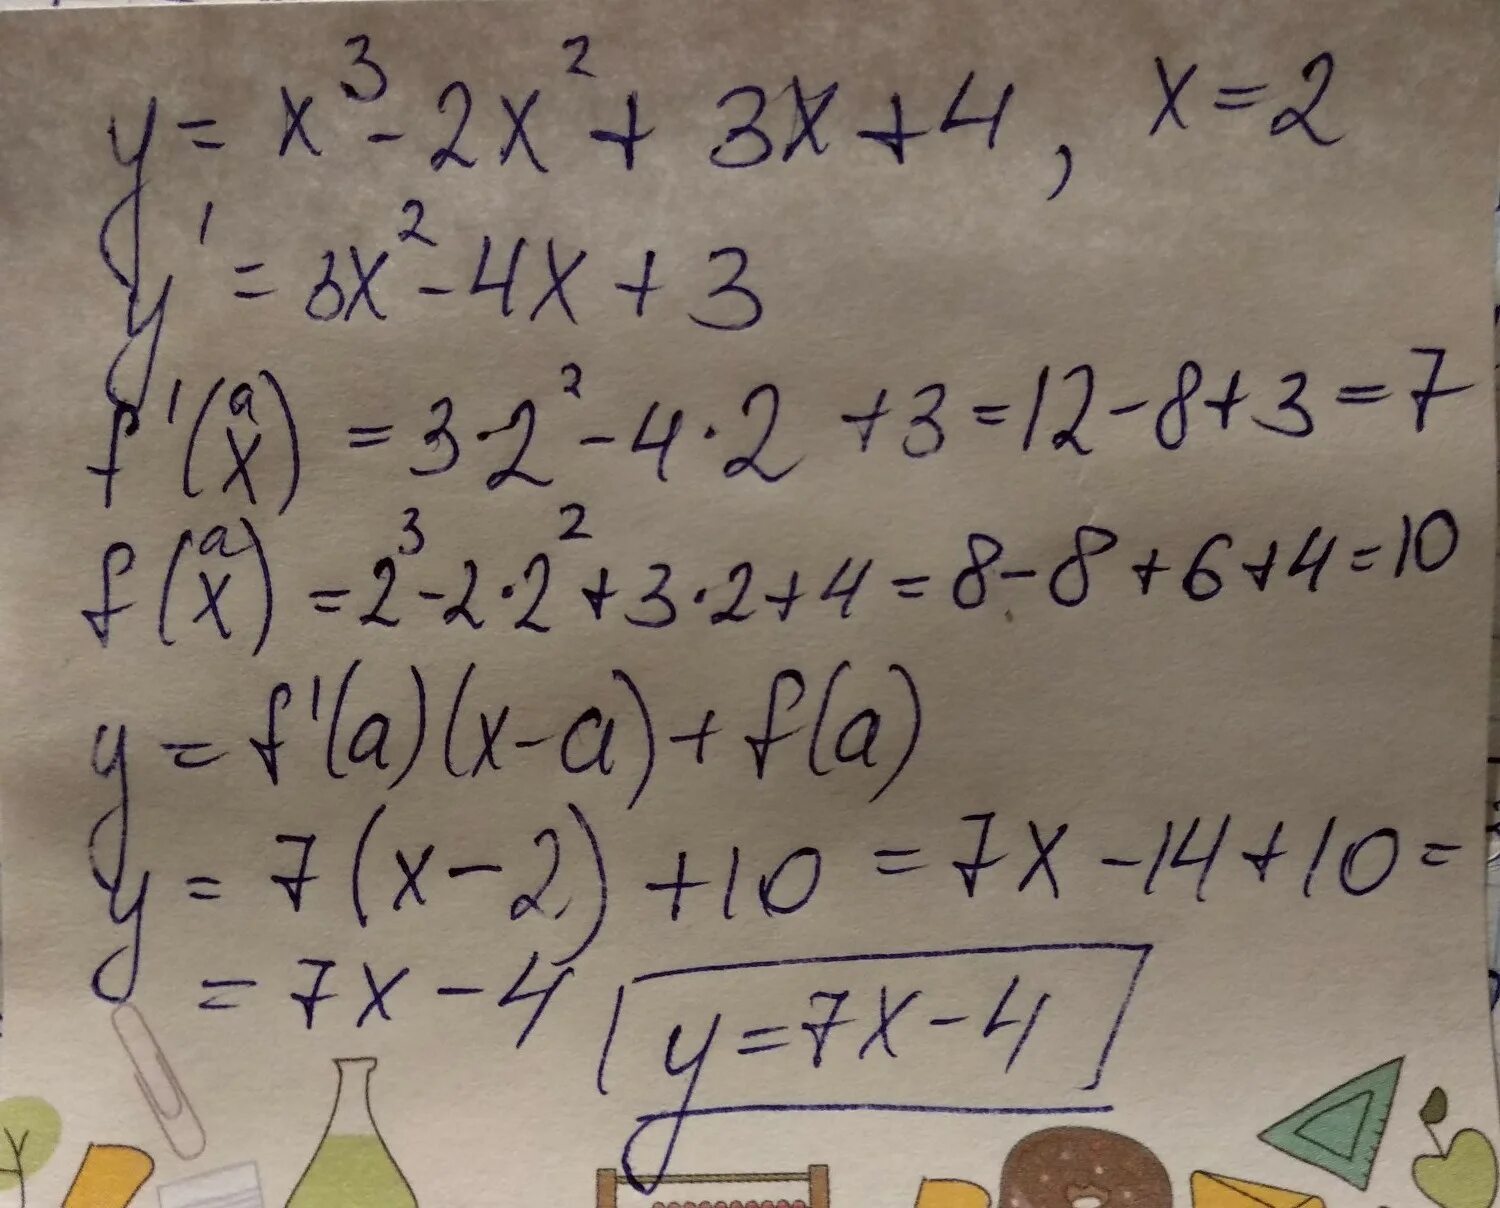 y = x³ - 2x² + 3x + 4, x = 2
y' = 3x² - 4x + 3
f'(x) a = 3·2² - 4·2 + 3 = 12 - 8 + 3 = 7
f(x) a = 2³ - 2·2² + 3·2 + 4 = 8 - 8 + 6 + 4 = 10
y = f'(a)(x - a) + f(a)
y = 7(x - 2) + 10 = 7x - 14 + 10 =
= 7x - 4 y = 7x - 4